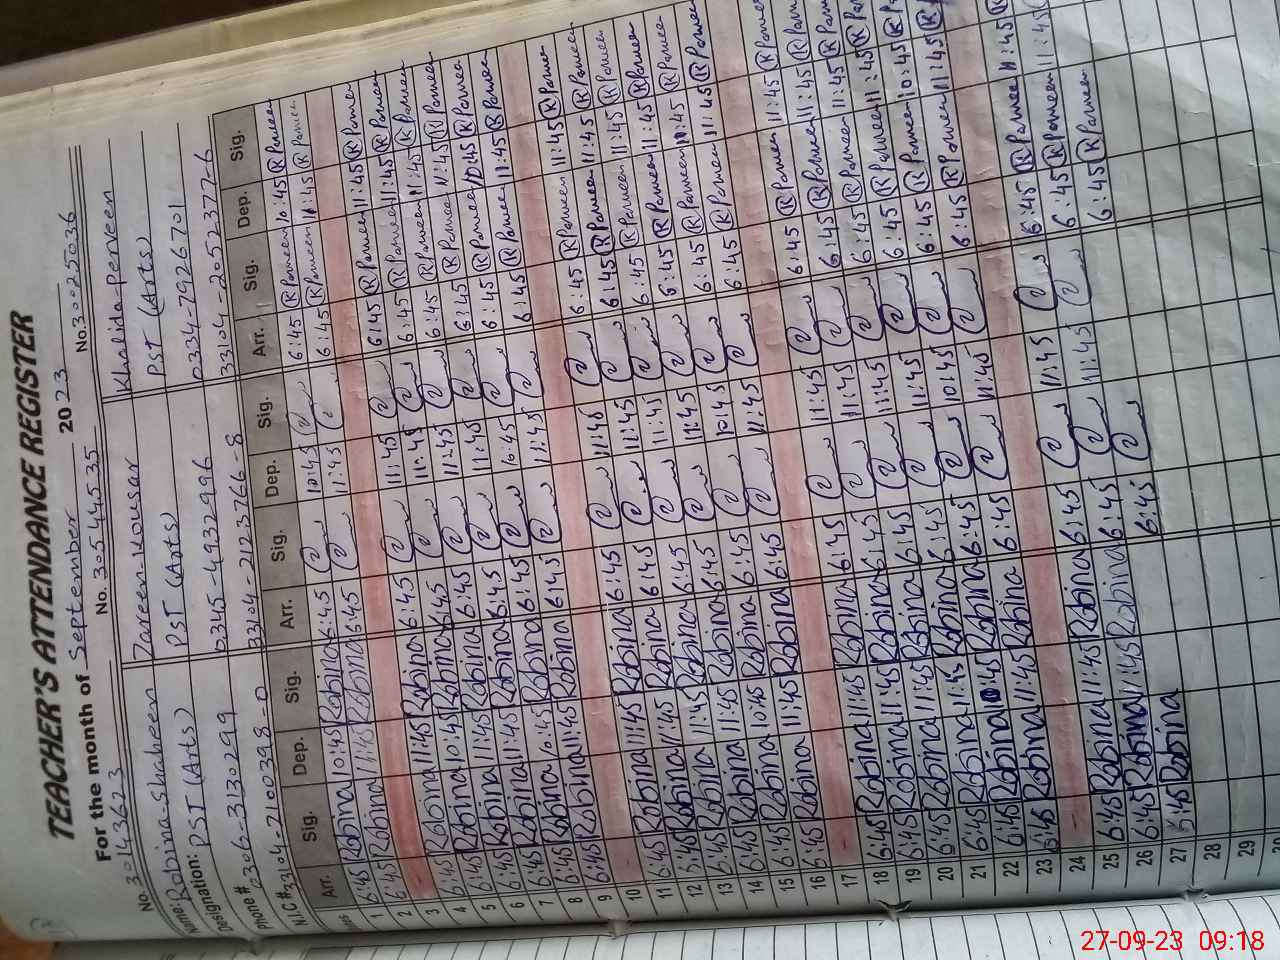 TEACHER'S ATTENDANCE REGISTER
For the month of September 2023
No. 30143623 No. 30544535 No. 30025036
Name: Robina-Shaheen Zareen-Kousar Khalida Perveen
Designation: PST (Arts) PST (Arts) PST (Arts)
Phone # 0306-3130299 0345-4932996 0334-7926701
N.I.C # 33104-7100398-0 33104-2123766-8 33104-2052377-6
Arr. Sig. Dep. Sig. Arr. Sig. Dep. Sig. Arr. Sig. Dep. Sig.
1 6:45 Robina 10:45 Robina 6:45 10:45 6:45 R Parveen 10:45 R Parveen
2 6:45 Robina 11:45 Robina 6:45 11:45 6:45 R Parveen 11:45 R Parveen
3
4 6:45 Robina 11:45 Robina 6:45 11:45 6:45 R Parveen 11:45 R Parveen
5 6:45 Robina 10:45 Robina 6:45 11:45 6:45 R Parveen 11:45 R Parveen
6 6:45 Robina 11:45 Robina 6:45 11:45 6:45 R Parveen 11:45 R Parveen
7 6:45 Robina 11:45 Robina 6:45 11:45 6:45 R Parveen 11:45 R Parveen
8 6:45 Robina 10:45 Robina 6:45 10:45 6:45 R Parveen 10:45 R Parveen
9 6:45 Robina 11:45 Robina 6:45 11:45 6:45 R Parveen 11:45 R Parveen
10
11 6:45 Robina 11:45 Robina 6:45 11:45 6:45 R Parveen 11:45 R Parveen
12 6:45 Robina 11:45 Robina 6:45 11:45 6:45 R Parveen 11:45 R Parveen
13 6:45 Robina 11:45 Robina 6:45 11:45 6:45 R Parveen 11:45 R Parveen
14 6:45 Robina 11:45 Robina 6:45 11:45 6:45 R Parveen 11:45 R Parveen
15 6:45 Robina 10:45 Robina 6:45 10:45 6:45 R Parveen R Parveen
16 6:45 Robina 11:45 Robina 6:45 11:45 6:45 R Parveen 11:45 R Parveen
17
18 6:45 Robina 11:45 Robina 6:45 11:45 6:45 R Parveen 11:45 R Parveen
19 6:45 Robina 11:45 Robina 6:45 11:45 6:45 R Parveen 11:45 R Parveen
20 6:45 Robina 11:45 Robina 6:45 11:45 6:45 R Parveen 11:45 R Parveen
21 6:45 Robina 11:45 Robina 6:45 11:45 6:45 R Parveen 11:45 R
22 6:45 Robina 10:45 Robina 6:45 10:45 6:45 R Parveen 10:45 R
23 6:45 Robina 11:45 Robina 6:45 11:45 6:45 R Parveen 11:45 R
24
25 6:45 Robina 11:45 Robina 6:45 11:45 6:45 R Parveen 11:45 R
26 6:45 Robina 11:45 Robina 6:45 11:45 6:45 R Parveen 11:45
27 6:45 Robina 6:45 6:45 R Parveen
28
29
27-09-23 09:18